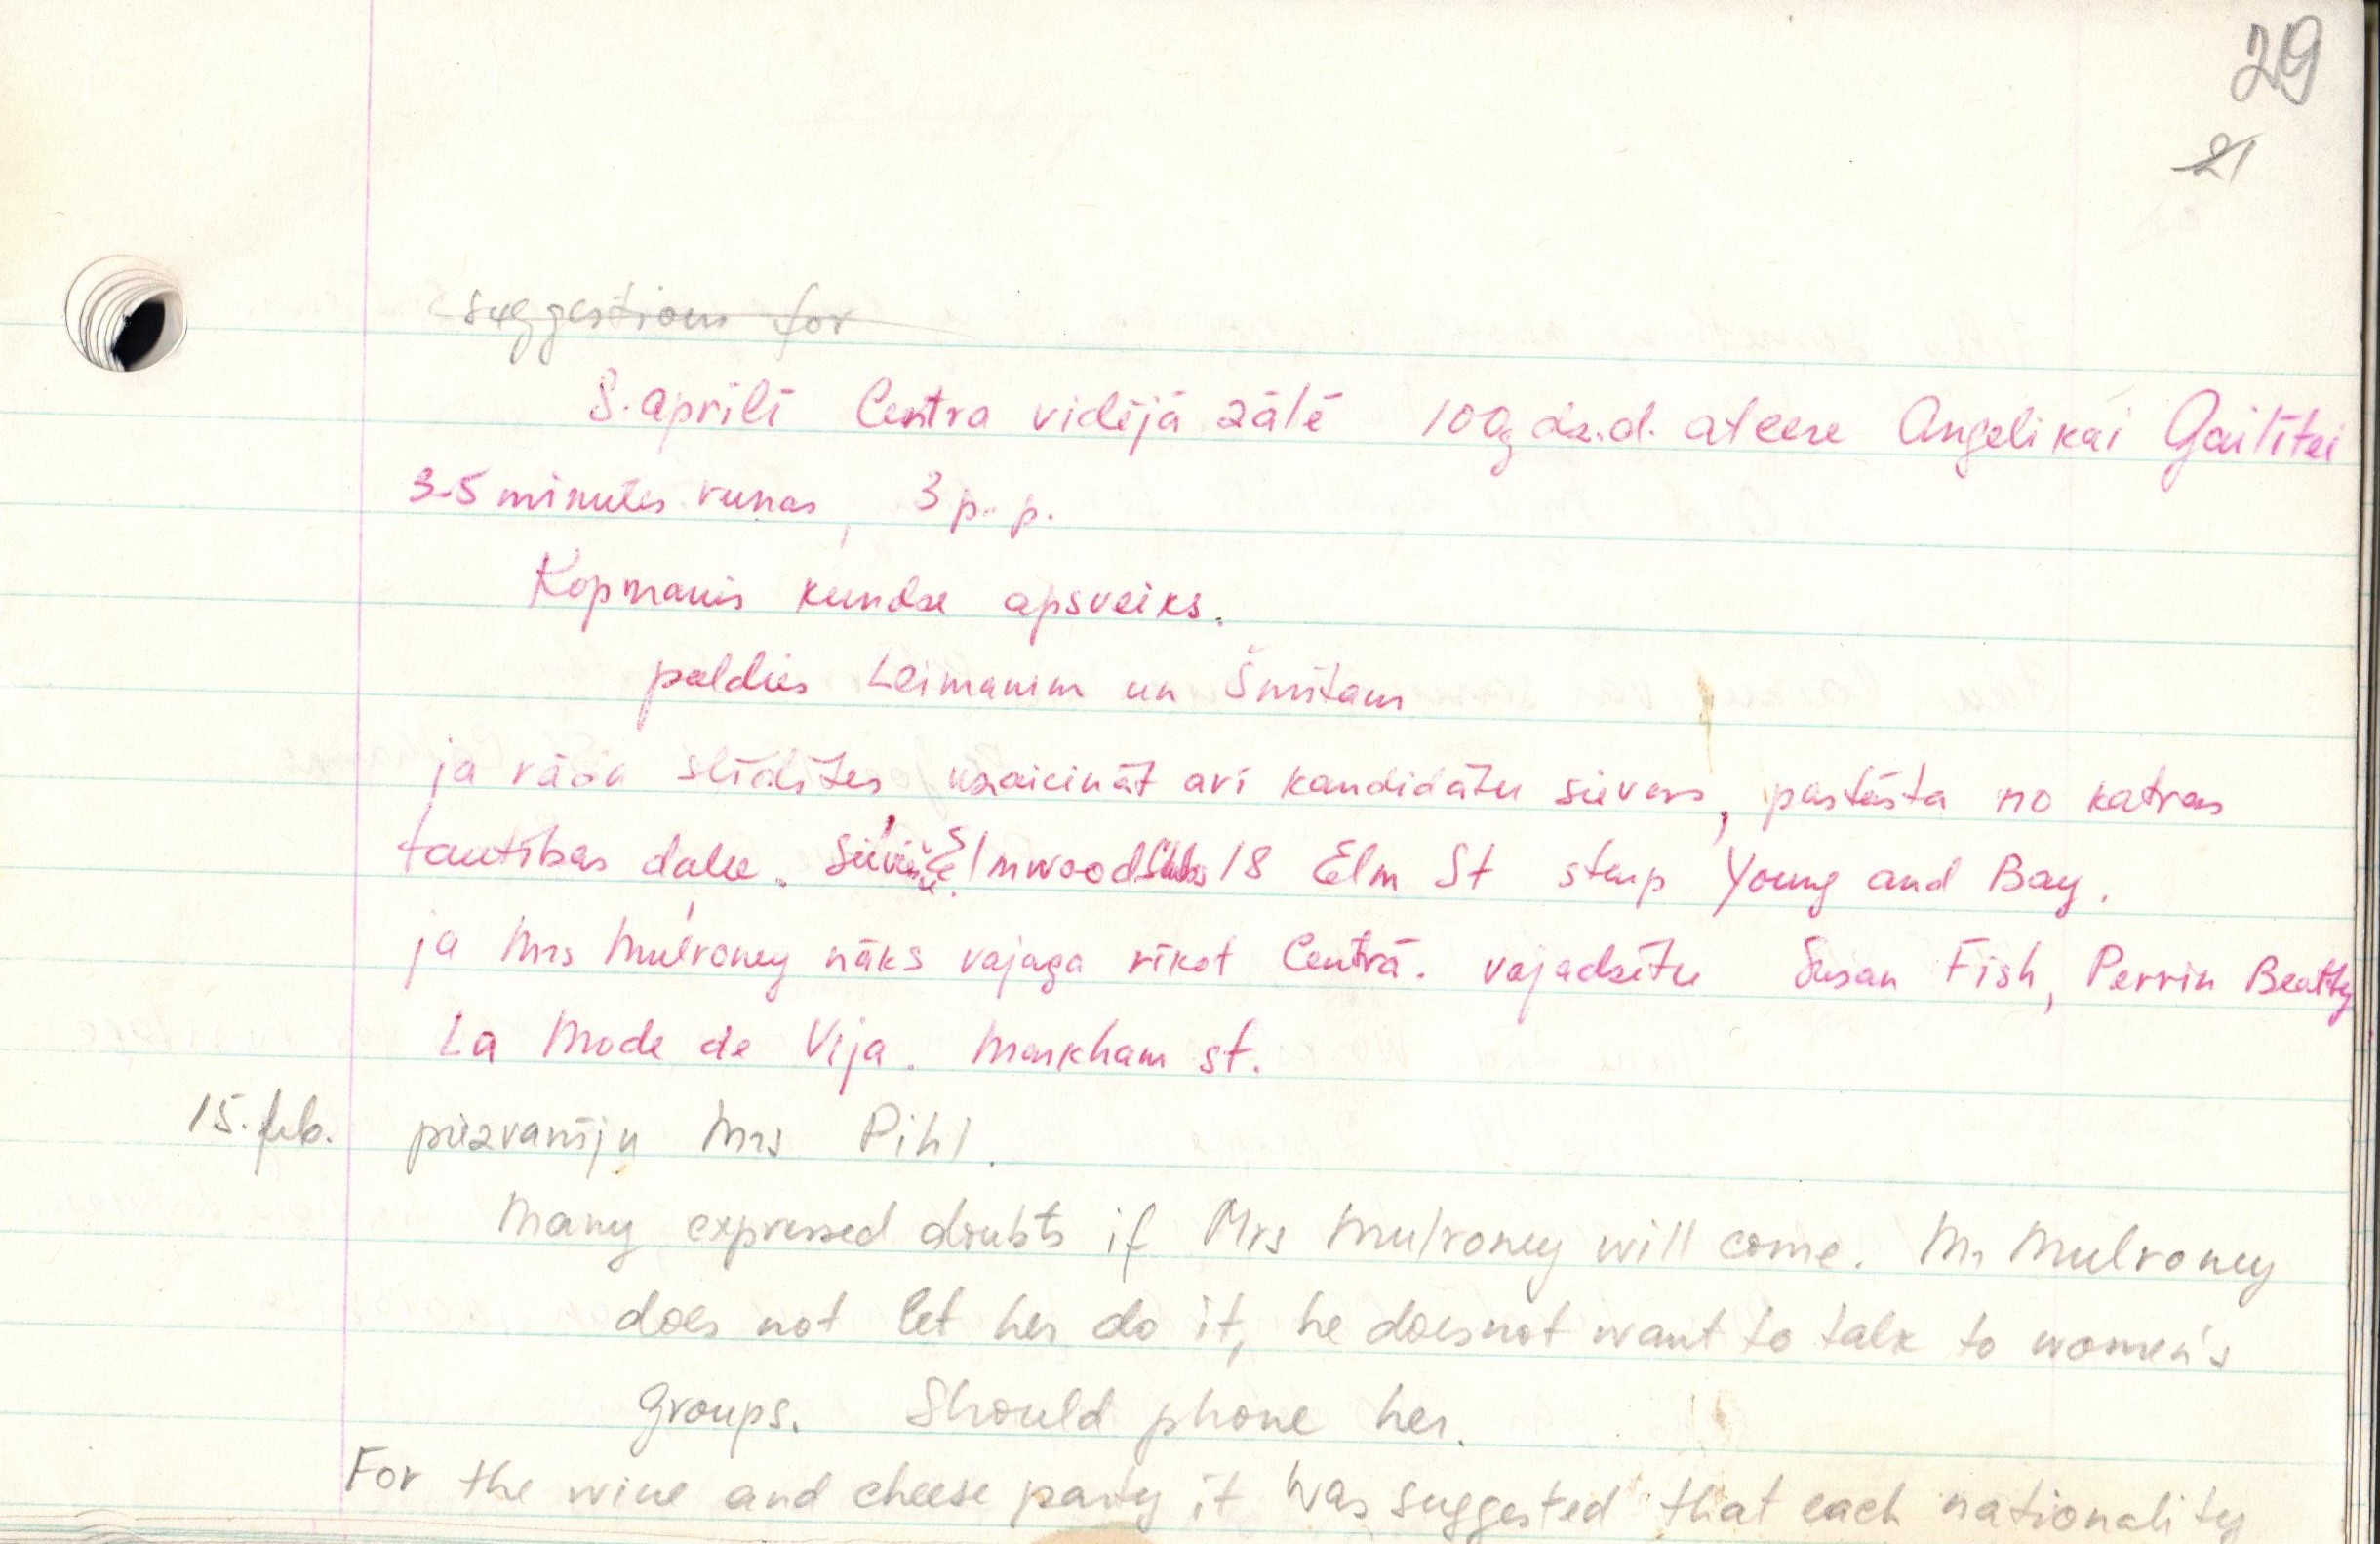 29
21
suggestions for
8. aprīlī Centra vidējā zālē 100g dz.d. atcere Angelikai Gailītei
3-5 minutes runas, 3 p. p.
Kopmanis kundze apsveiks.
paldies Leimanim un Šmitam
ja rāda slīdītes, uzaicināt arī kandidātu sievas, pastāsta no katras
tautības daļu. Elmwood 18 Elm St starp Young and Bay.
ja Mrs Mulroney nāks vajaga rīkot Centrā. vajadzētu Susan Fish, Perrin Beatty
La Mode de Vija. Markham st.
15. feb. piezvanīju Mrs Pihl.
Many expressed doubts if Mrs Mulroney will come. Mr Mulroney
does not let her do it, he doesnot want to talk to women's
groups. Should phone her.
For the wine and cheese party it was suggested that each nationality